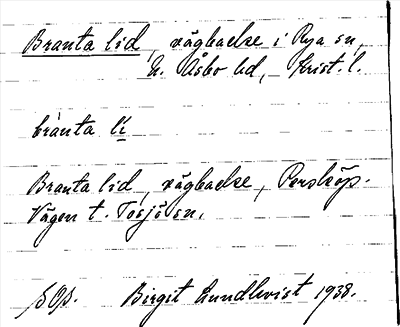 Branta lid, vägbacke i Rya sn,
N. Åsbo hd, Krist. l.
brànta lí
Branta lid, vägbacke, Perstorp.
Vägen t. Tosjö sn.
Birgit Lundkvist 1938.